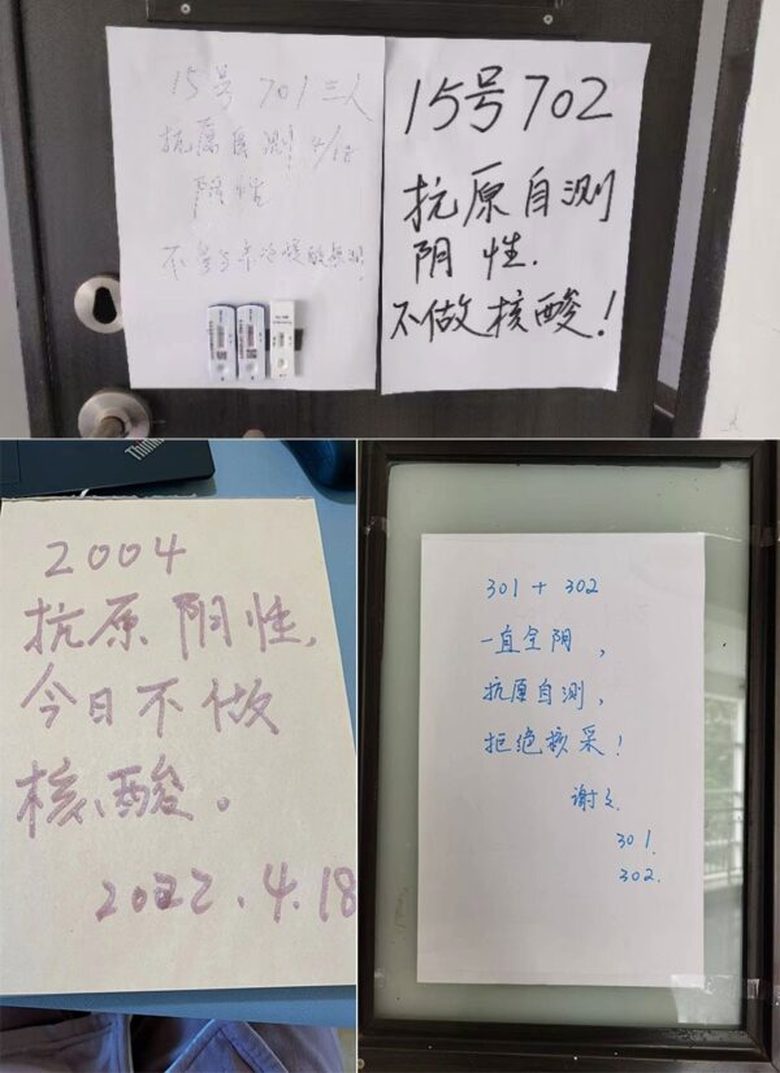 15号 701 三人
抗原自测 4/18
阴性
15号702
抗原自测
阴性.
不做核酸!
Think
2004
抗原阴性,
今日不做
核酸。
2022.4.18
301 + 302
一直全阴,
抗原自测,
拒绝核采!
谢之
301.
302.